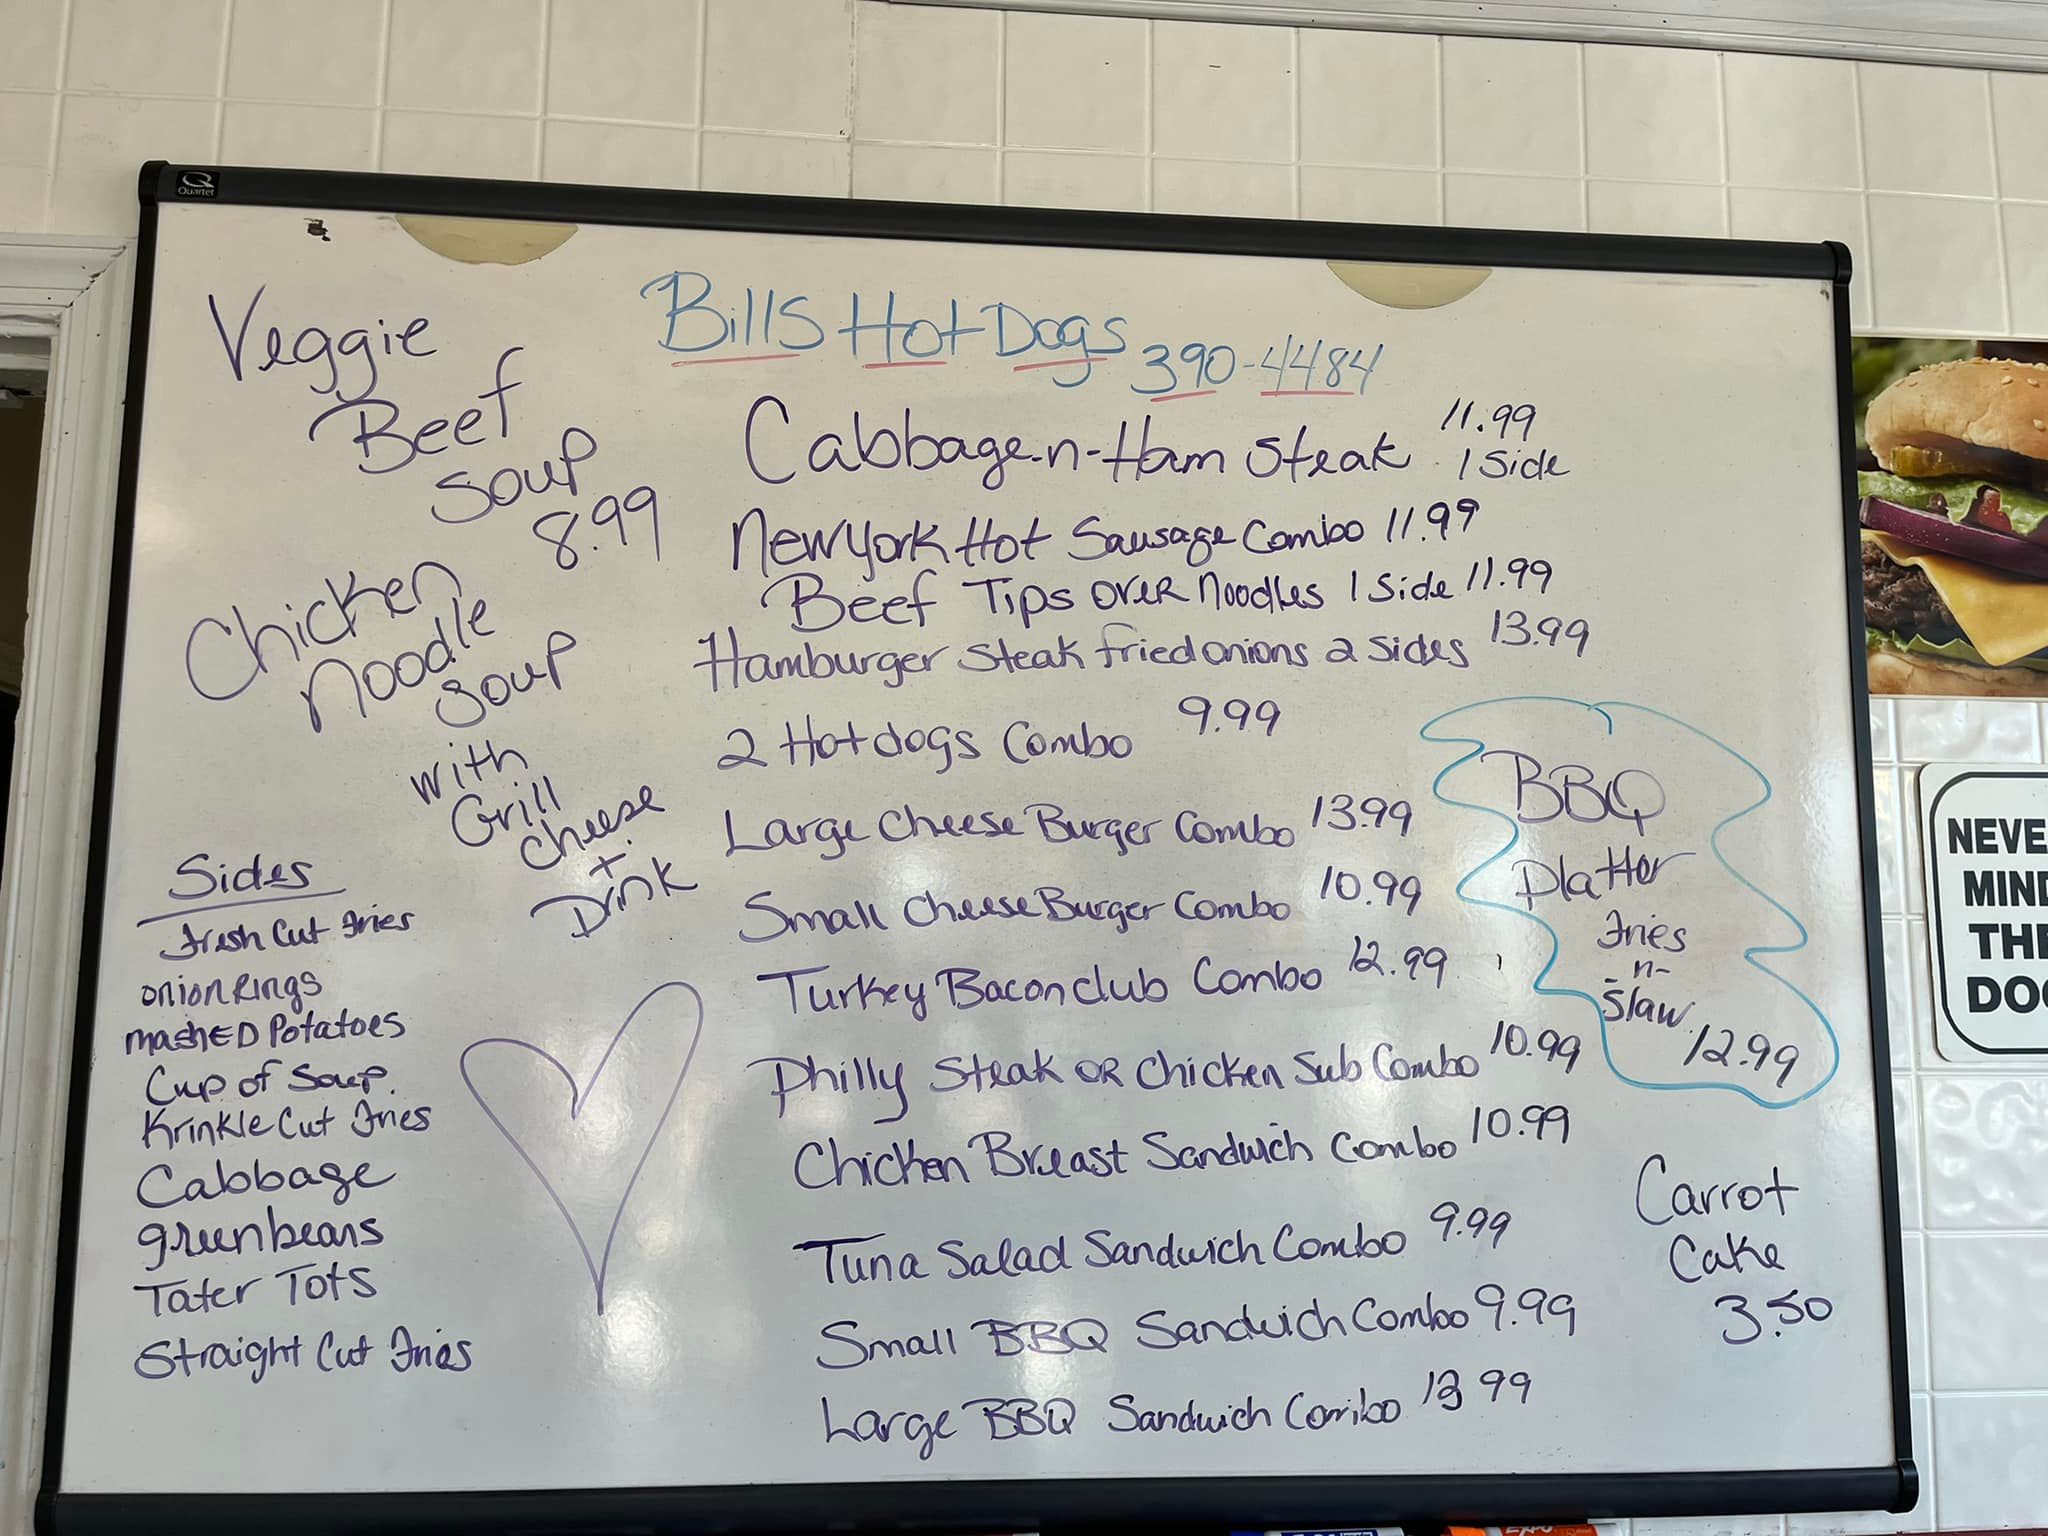 Quartet
Veggie
Beef
soup
8.99
Chicken
noodle
soup
with
Grill
cheese
+
Drink
Sides
Fresh Cut Fries
onion Rings
mashed Potatoes
Cup of Soup.
Krinkle Cut Fries
Cabbage
greenbeans
Tater Tots
Straight Cut Fries
Bills Hot Dogs 390-4484
Cabbage-n-Ham Steak 11.99
1 Side
New York Hot Sausage Combo 11.99
Beef Tips over noodles 1 Side 11.99
Hamburger Steak fried onions 2 Sides 13.99
2 Hotdogs Combo 9.99
Large Cheese Burger Combo 13.99
Small Cheese Burger Combo 10.99
Turkey Bacon club Combo 12.99
Philly Steak OR Chicken Sub Combo 10.99
Chicken Breast Sandwich Combo 10.99
Tuna Salad Sandwich Combo 9.99
Small BBQ Sandwich Combo 9.99
Large BBQ Sandwich Combo 13 99
BBQ
Platter
Fries
-n-
Slaw
12.99
Carrot
Cake
3.50
NEVE
MIND
THE
DOG
EXPO